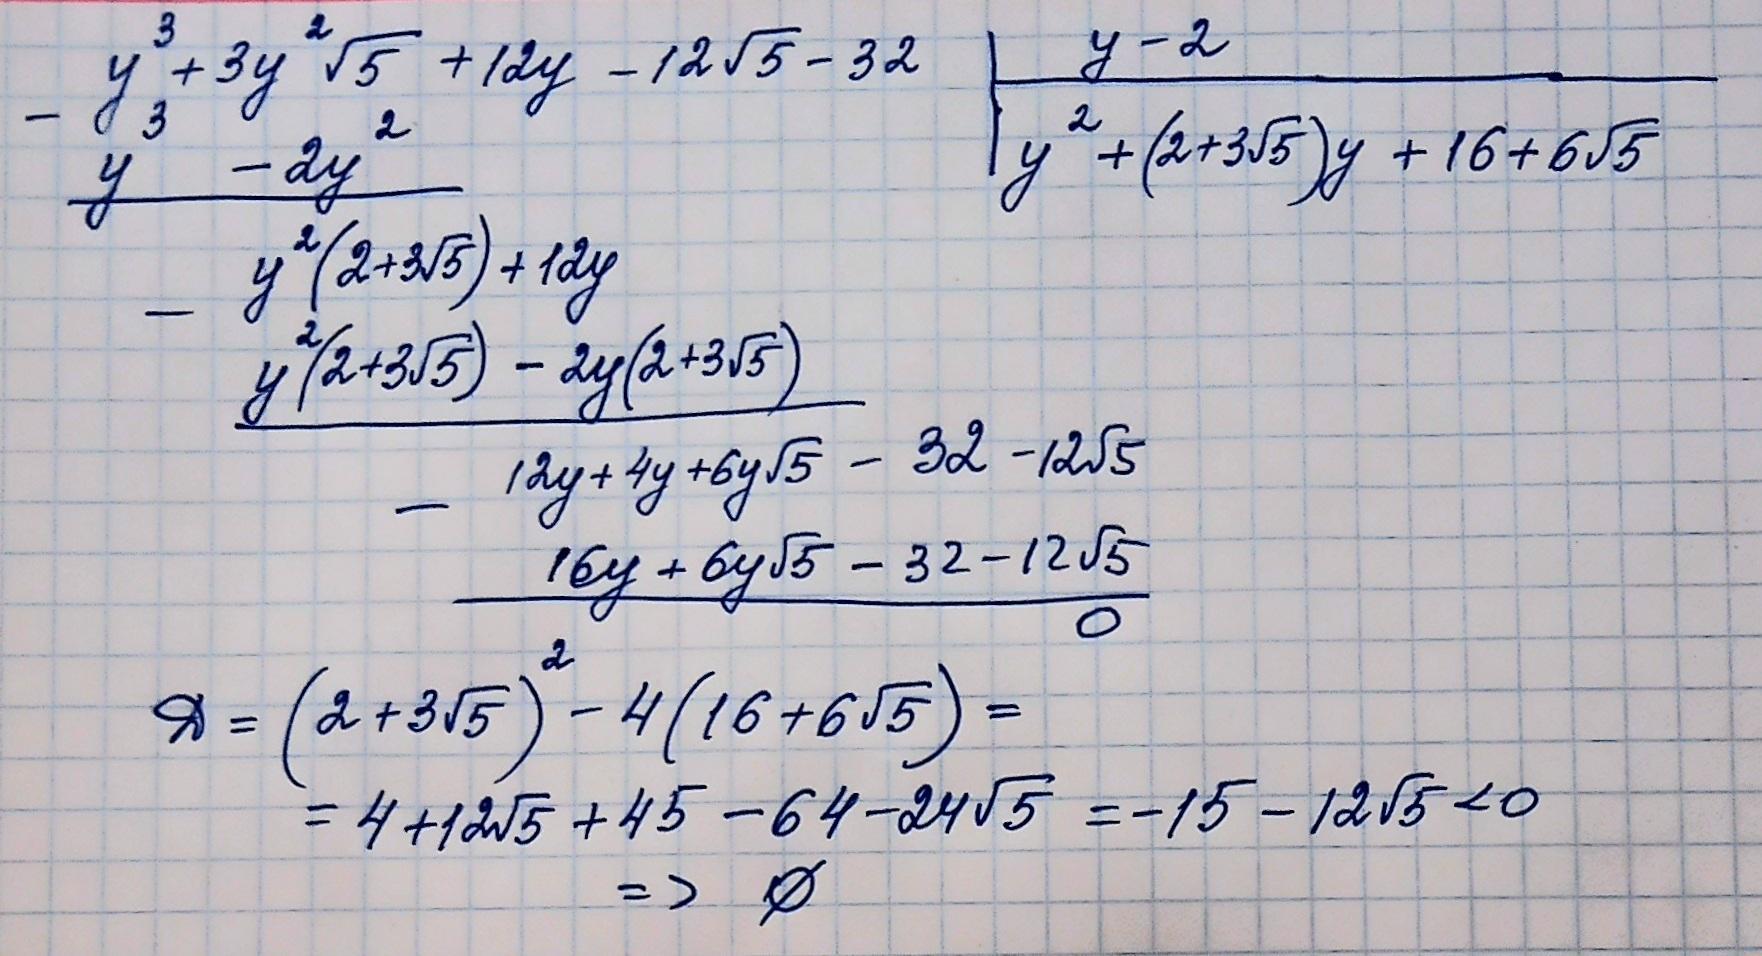 y³ + 3y²√5 + 12y - 12√5 - 32 | y - 2
- y³ - 2y² | y² + (2+3√5)y + 16 + 6√5
y²(2+3√5) + 12y
- y²(2+3√5) - 2y(2+3√5)
12y + 4y + 6y√5 - 32 - 12√5
- 16y + 6y√5 - 32 - 12√5
0
D = (2+3√5)² - 4(16+6√5) =
= 4 + 12√5 + 45 - 64 - 24√5 = -15 - 12√5 < 0
=> ∅